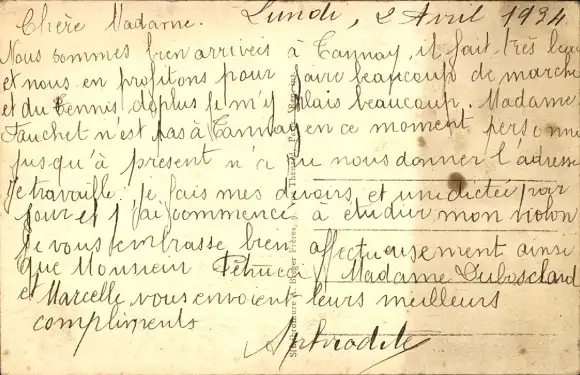 Chère Madame. Lundi, 2 Avril 1934.
Nous sommes bien arrivées à Tannay, il fait très beau
et nous en profitons pour faire beaucoup de marche
et du tennis, deplus je m'y plais beaucoup. Madame
Fauchet n'est pas à Tannay en ce moment, personne
jusqu'à présent n'a pu nous donner l'adresse
Je travaille. je fais mes devoirs et une dictée par
jour et j'ai commencé à étudier mon violon
Je vous embrasse bien affectueusement ainsi
que Monsieur Madame Duboschard
et Marcelle vous envoient leurs meilleurs
compliments
Aphrodite